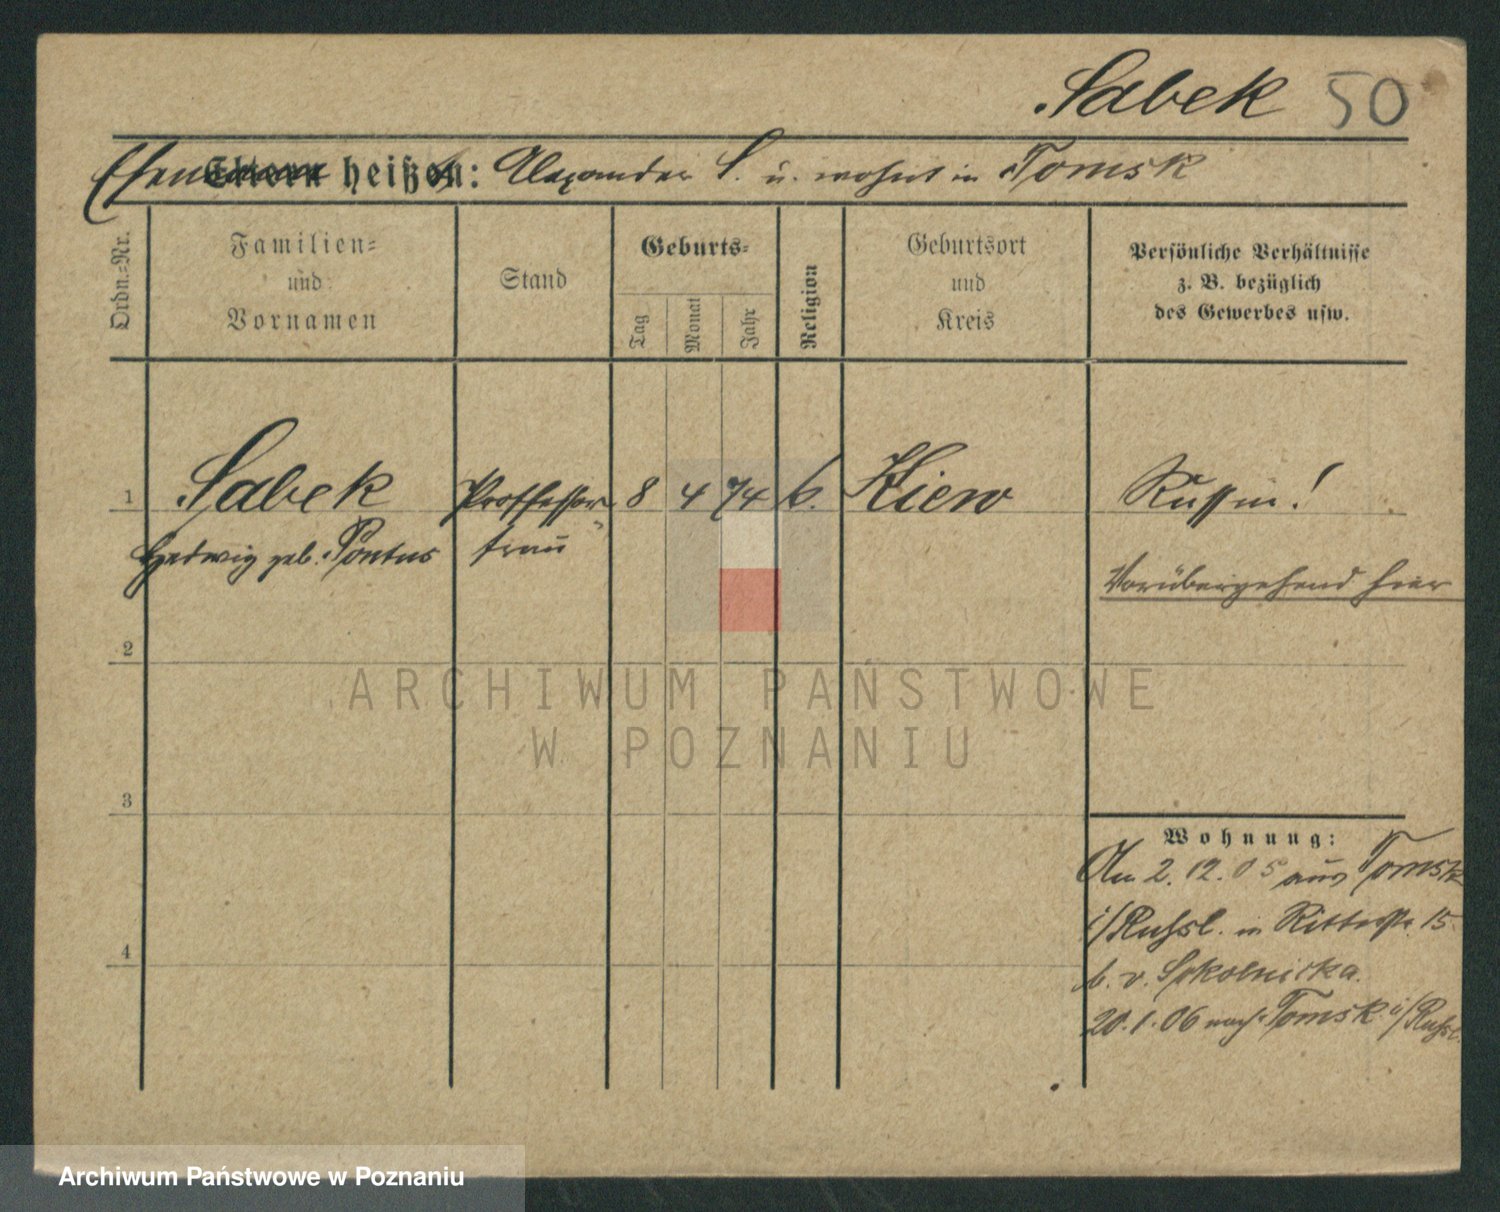 Sabek 50
Ehemann heißt: Alexander S. u. wohnt in Tomsk
Ordn.-Nr.
Familien-
und
Vornamen
Stand
Geburts-
Tag
Monat
Jahr
Religion
Geburtsort
und
Kreis
Persönliche Verhältnisse
z. B. bezüglich
des Gewerbes usw.
1 Sabek Proffessor 8 4 74 k. Kiew Russin!
Hedwig geb. Pontus frau
Vorübergehend hier
2
ARCHIWUM PAŃSTWOWE
W POZNANIU
3
Wohnung:
Am 2.12.05 aus Tomsk
i/Russl. in Ritterstr. 15
b. v. Sokolnicka.
4
20.1.06 nach Tomsk i/Russl.
Archiwum Państwowe w Poznaniu